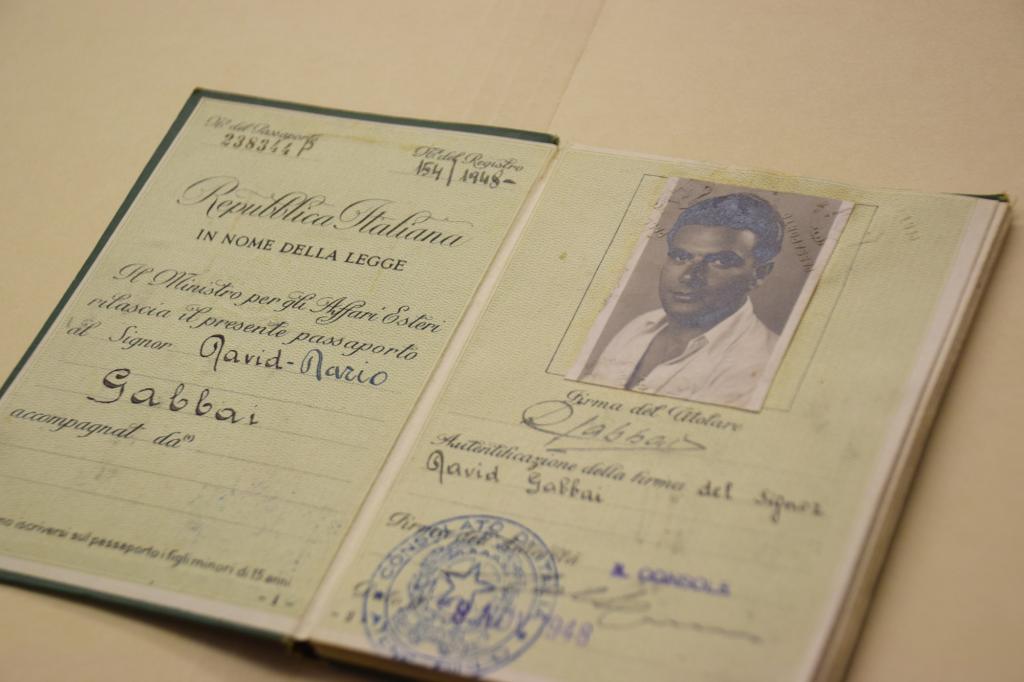 N.° del Passaporto
238344 P
N.° del Registro
154/1948-
Repubblica Italiana
IN NOME DELLA LEGGE
Il Ministro per gli Affari Esteri
rilascia il presente passaporto
al Signor David-Dario
Gabbai
accompagnat da
iscriversi sul passaporto i figli minori di 15 anni
- 1 -
Firma del Titolare
DGabbai
Autentificazione della firma del Signor
David Gabbai
Firma dell'
IL CONSOLE
CONSOLATO D'ITALIA
8 NOV 1948